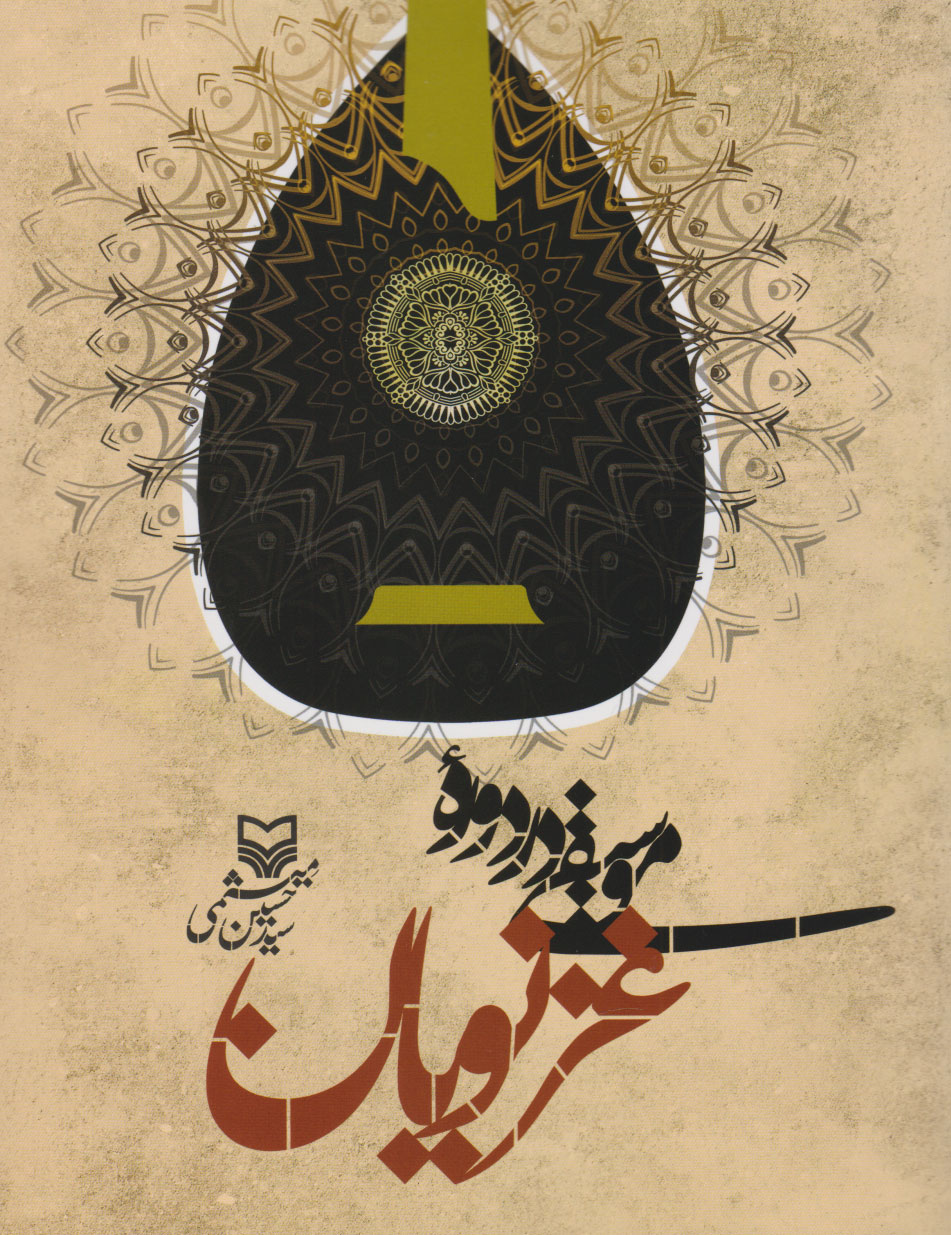 موسیقی در دورهٔ
غزنویان
سید حسین میثمی